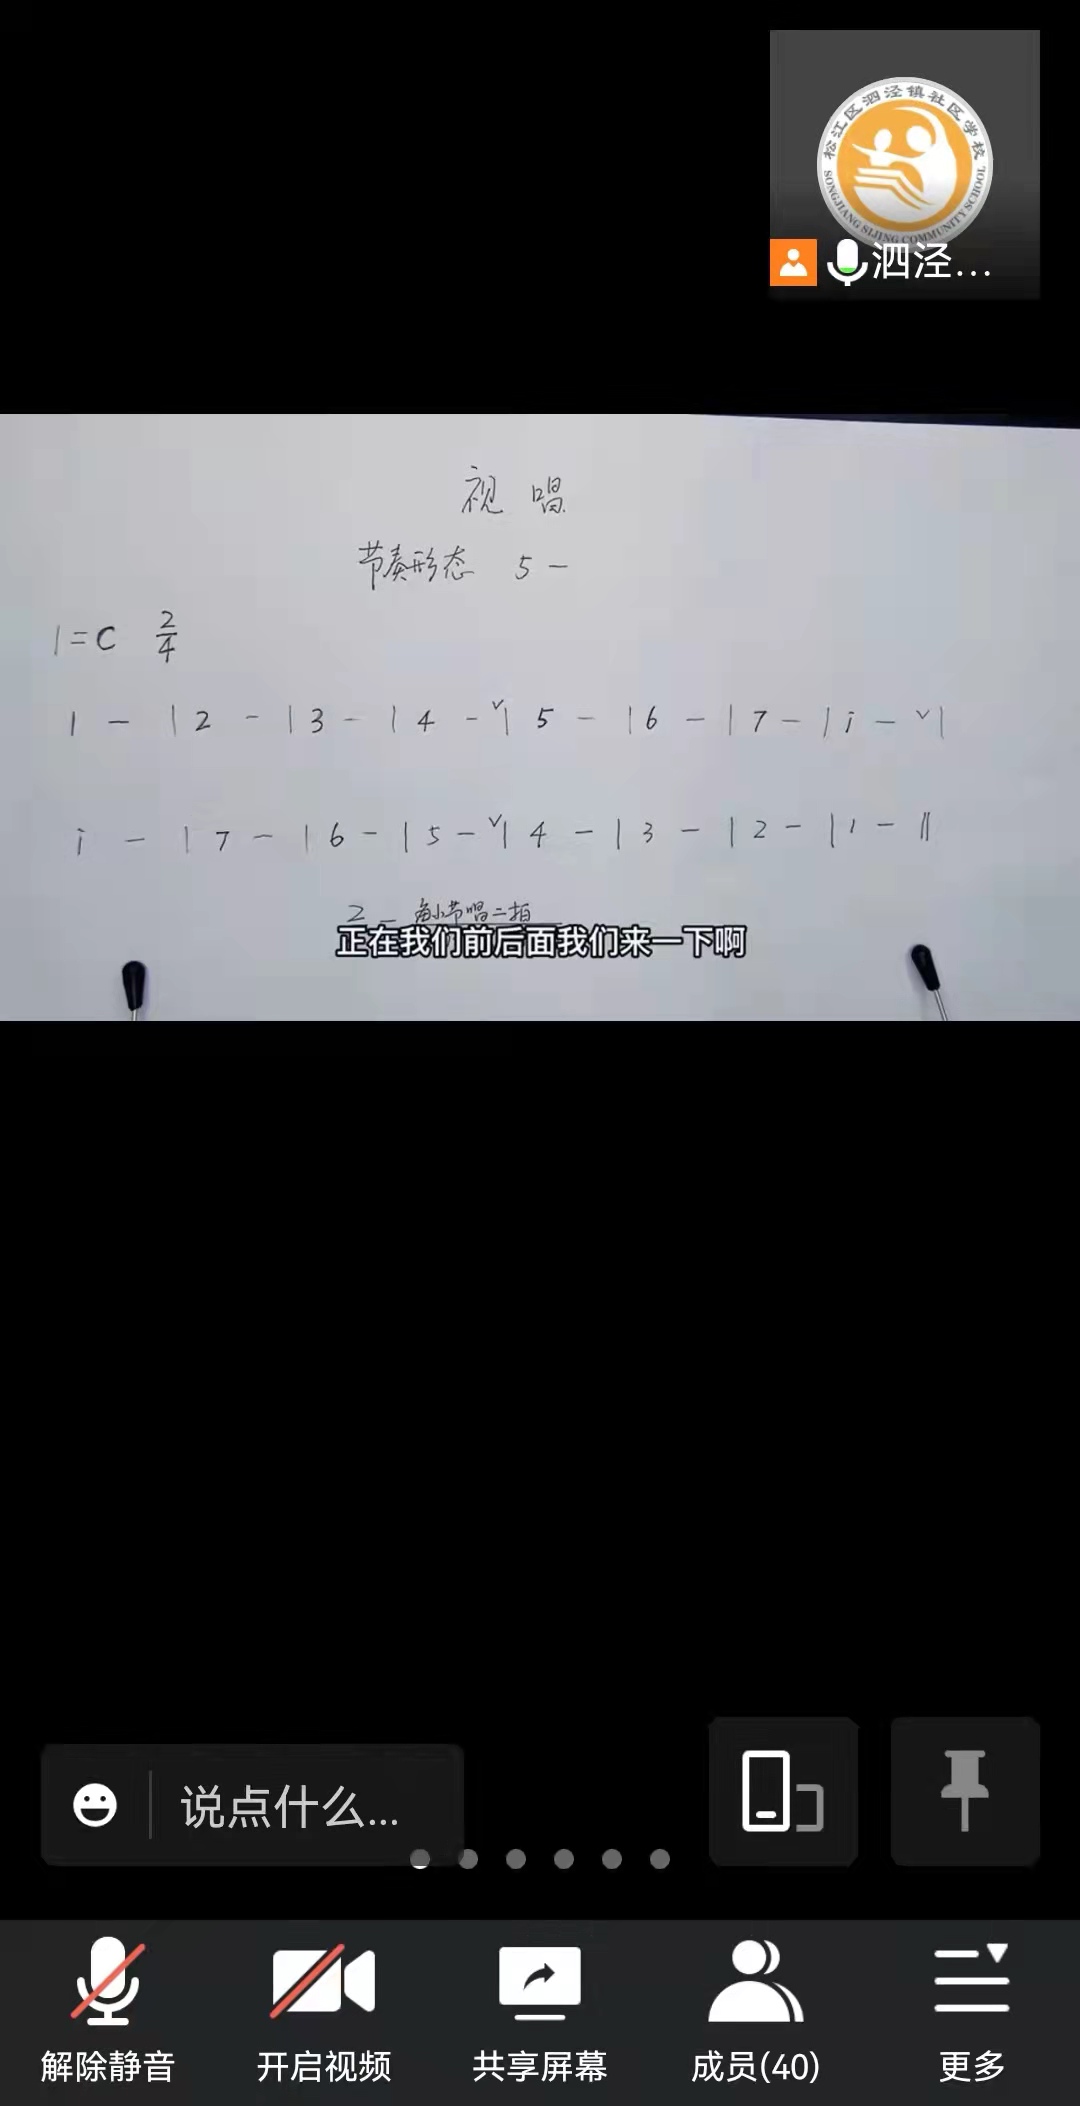 松江区泗泾镇社区学校
SONGJIANG SIJING COMMUNITY SCHOOL
泗泾...
视 唱
节奏形态 5 -
1=C 2/4
1 - | 2 - | 3 - | 4 - ˅| 5 - | 6 - | 7 - | i - ˅|
i - | 7 - | 6 - | 5 - ˅| 4 - | 3 - | 2 - | 1 - ‖
2 - 每小节唱二拍
正在我们前后面我们来一下啊
说点什么...
解除静音 开启视频 共享屏幕 成员(40) 更多